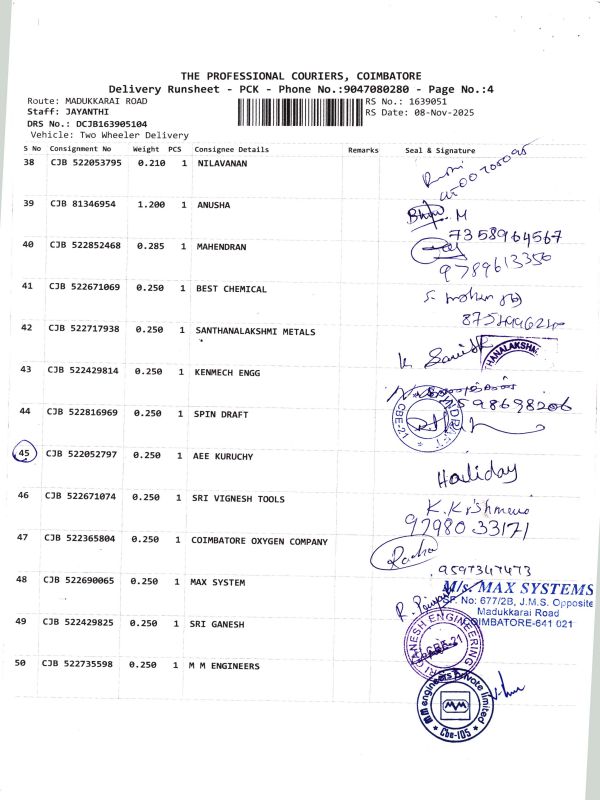 THE PROFESSIONAL COURIERS, COIMBATORE
Delivery Runsheet - PCK - Phone No.:9047080280 - Page No.:4
Route: MADUKKARAI ROAD RS No.: 1639051
Staff: JAYANTHI RS Date: 08-Nov-2025
DRS No.: DCJB163905104
Vehicle: Two Wheeler Delivery
S No Consignment No Weight PCS Consignee Details Remarks Seal & Signature
38 CJB 522053795 0.210 1 NILAVANAN
39 CJB 81346954 1.200 1 ANUSHA M
7358964567
40 CJB 522852468 0.285 1 MAHENDRAN
9789613350
41 CJB 522671069 0.250 1 BEST CHEMICAL
42 CJB 522717938 0.250 1 SANTHANALAKSHMI METALS
THANALAKSHM
43 CJB 522429814 0.250 1 KENMECH ENGG
44 CJB 522816969 0.250 1 SPIN DRAFT
CBE-21
45 CJB 522052797 0.250 1 AEE KURUCHY Holiday
46 CJB 522671074 0.250 1 SRI VIGNESH TOOLS
97980 33171
47 CJB 522365804 0.250 1 COIMBATORE OXYGEN COMPANY Radha
9597347473
48 CJB 522690065 0.250 1 MAX SYSTEM
M/s. MAX SYSTEMS
SF. No: 677/2B, J.M.S. Opposite
Madukkarai Road
COIMBATORE-641 021
49 CJB 522429825 0.250 1 SRI GANESH
SRI GANESH ENGINEERING
CBE-21
50 CJB 522735598 0.250 1 M M ENGINEERS
MM engineers Private limited
MM
* Cbe-105 *